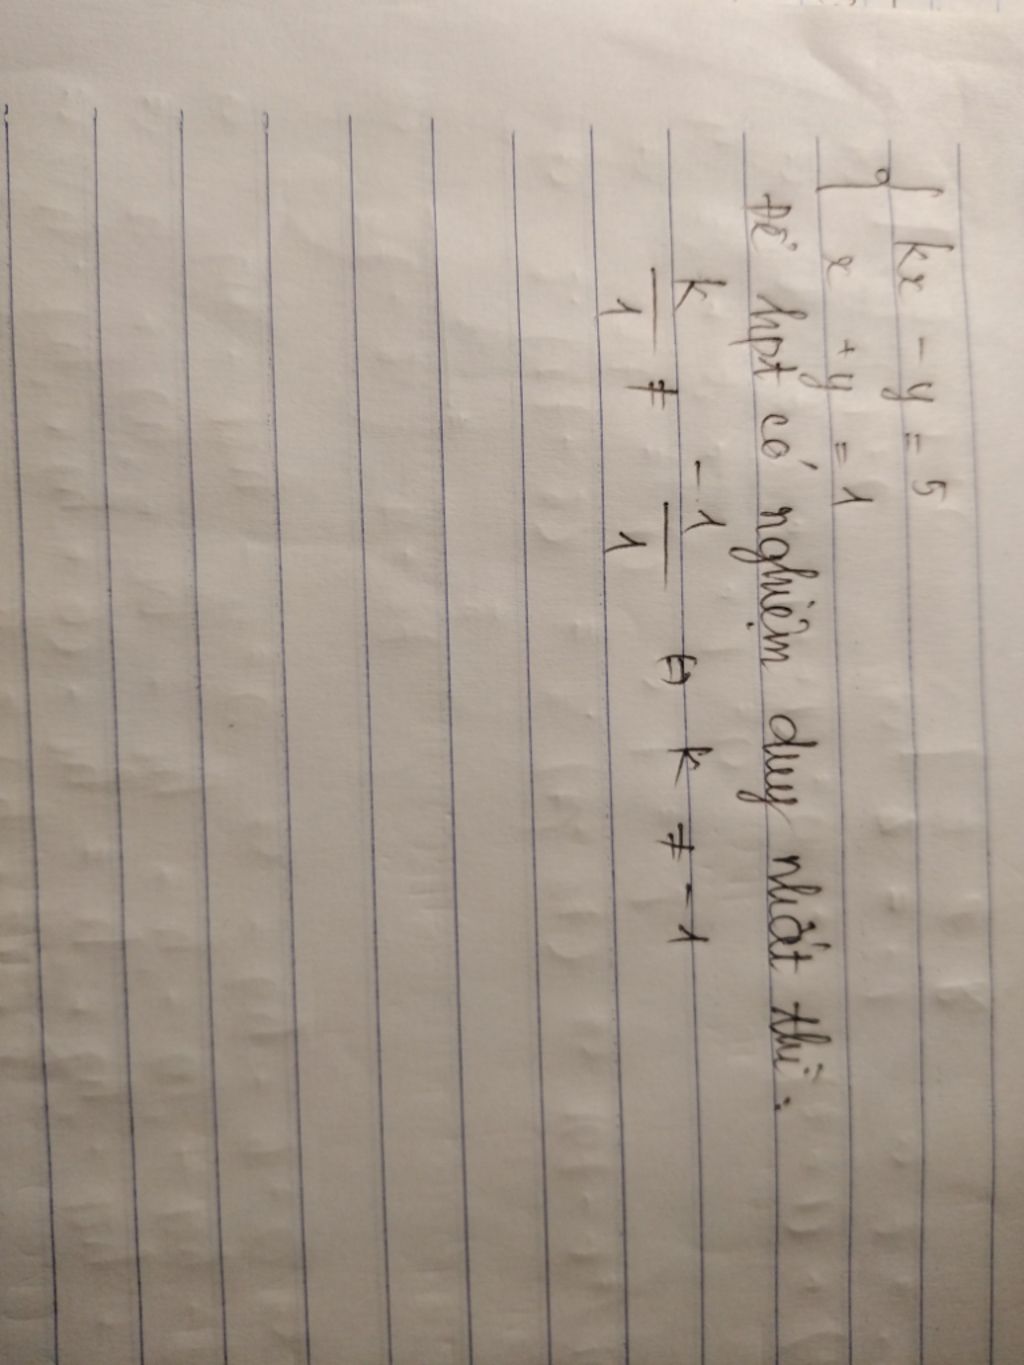 { kx - y = 5
x + y = 1
Để hpt có nghiệm duy nhất thì:
k/1 ≠ -1/1 ⇔ k ≠ -1